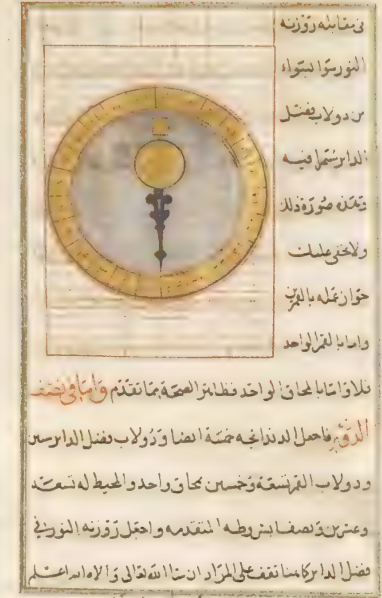 فى مقابلة روزنة
النور سوا بسواء
من دولاب فضل
الداير شمل فيه
وهذه صورة ذلك
ولا يخفى عليك
جواز عمله بالقمرين
واما بالقمر الواحد
فلا واما بالمحاق الواحد فظاهر الصحة مما تقدم واما فى نصف
الدور فاجعل الدندانجه خمسة ايضا ودولاب فضل الداير ستين
ودولاب القمر تسعة وخمسين بمحاق واحد والمحيط له تسعة
وعشرين ونصفا بشروطه المتقدمه واجعل روزنه النور فى
فضل الداير كامنا تقف على المراد ان شا الله تعالى والاه الله اعلم